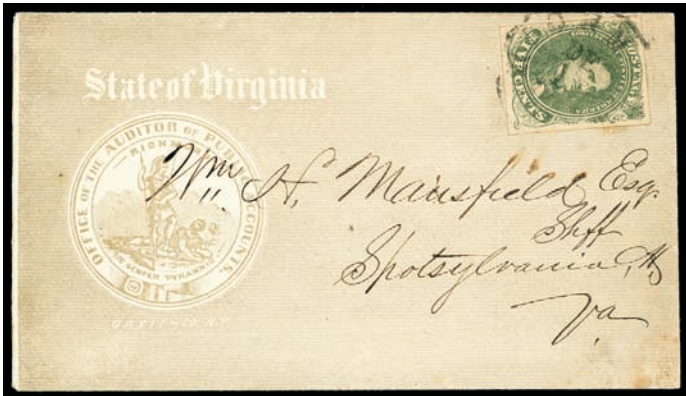 State of Virginia
OFFICE OF THE AUDITOR OF PUBLIC ACCOUNTS.
RICHM
SIC SEMPER TYRANNIS
Wm H. Mansfield Esq.
Shff
Spotsylvania C.H.
Va